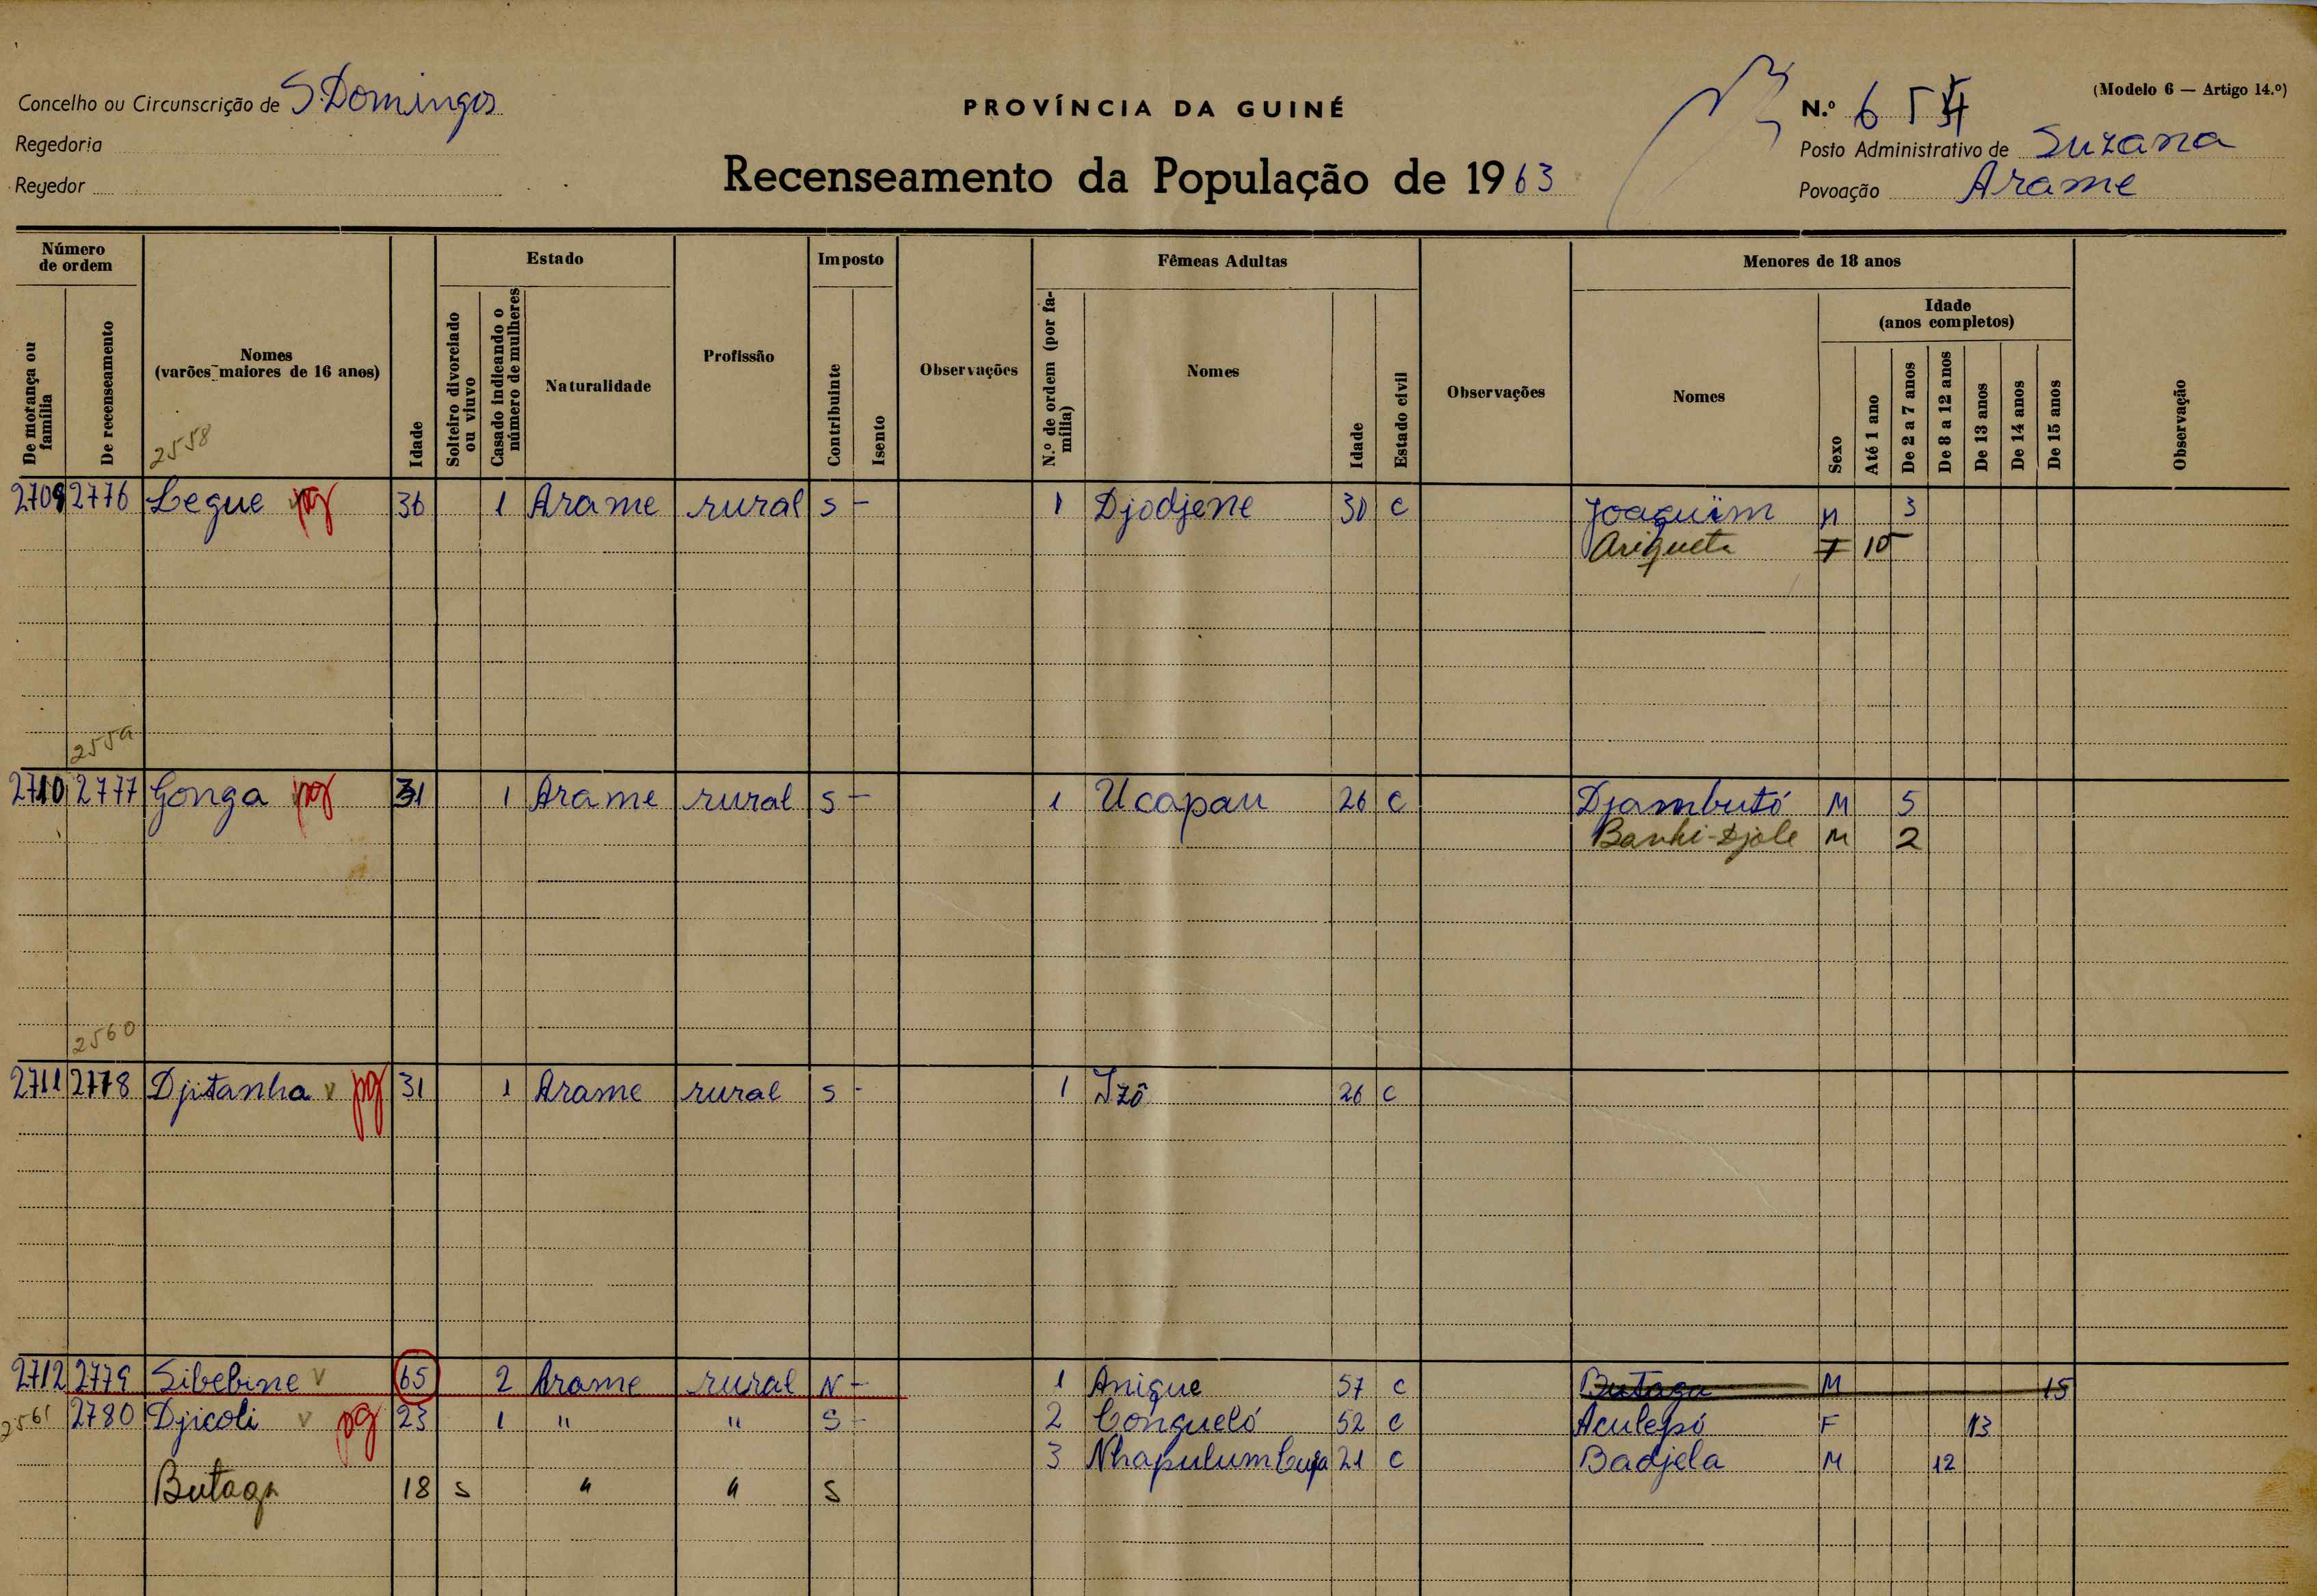 (Modelo 6 — Artigo 14.º)
Concelho ou Circunscrição de S. Domingos
PROVÍNCIA DA GUINÉ
N.º 654
Regedoria
Posto Administrativo de Suzana
Regedor
Recenseamento da População de 1963
Povoação Arame
Número de ordem
De morança ou família
De recenseamento
Nomes (varões maiores de 16 anos)
Idade
Estado
Solteiro divorciado ou viuvo
Casado indicando o número de mulheres
Naturalidade
Profissão
Imposto
Contribuinte
Isento
Observações
Fêmeas Adultas
N.º de ordem (por família)
Nomes
Idade
Estado civil
Observações
Menores de 18 anos
Nomes
Sexo
Idade (anos completos)
Até 1 ano
De 2 a 7 anos
De 8 a 12 anos
De 13 anos
De 14 anos
De 15 anos
Observação
2558
2709 2776 Legue pg 36 1 Arame rural S - 1 Djodjene 30 C Joaquim M 3
Ariqueta F 10
2559
2710 2777 Gonga pg 31 1 Arame rural S - 1 Ucapau 26 C Djambutó M 5
Banhi-Djole M 2
2560
2711 2778 Djitanha v pg 31 1 Arame rural S - 1 Izô 26 C
2712 2779 Sibebine v 65 2 Arame rural N - 1 Anique 57 C Butaga M 15
2561 2780 Djicoli v pg 23 1 " " S - 2 Congueló 52 C Aculepó F 13
3 21 C Badjela M 12
Butaga 18 S " " S